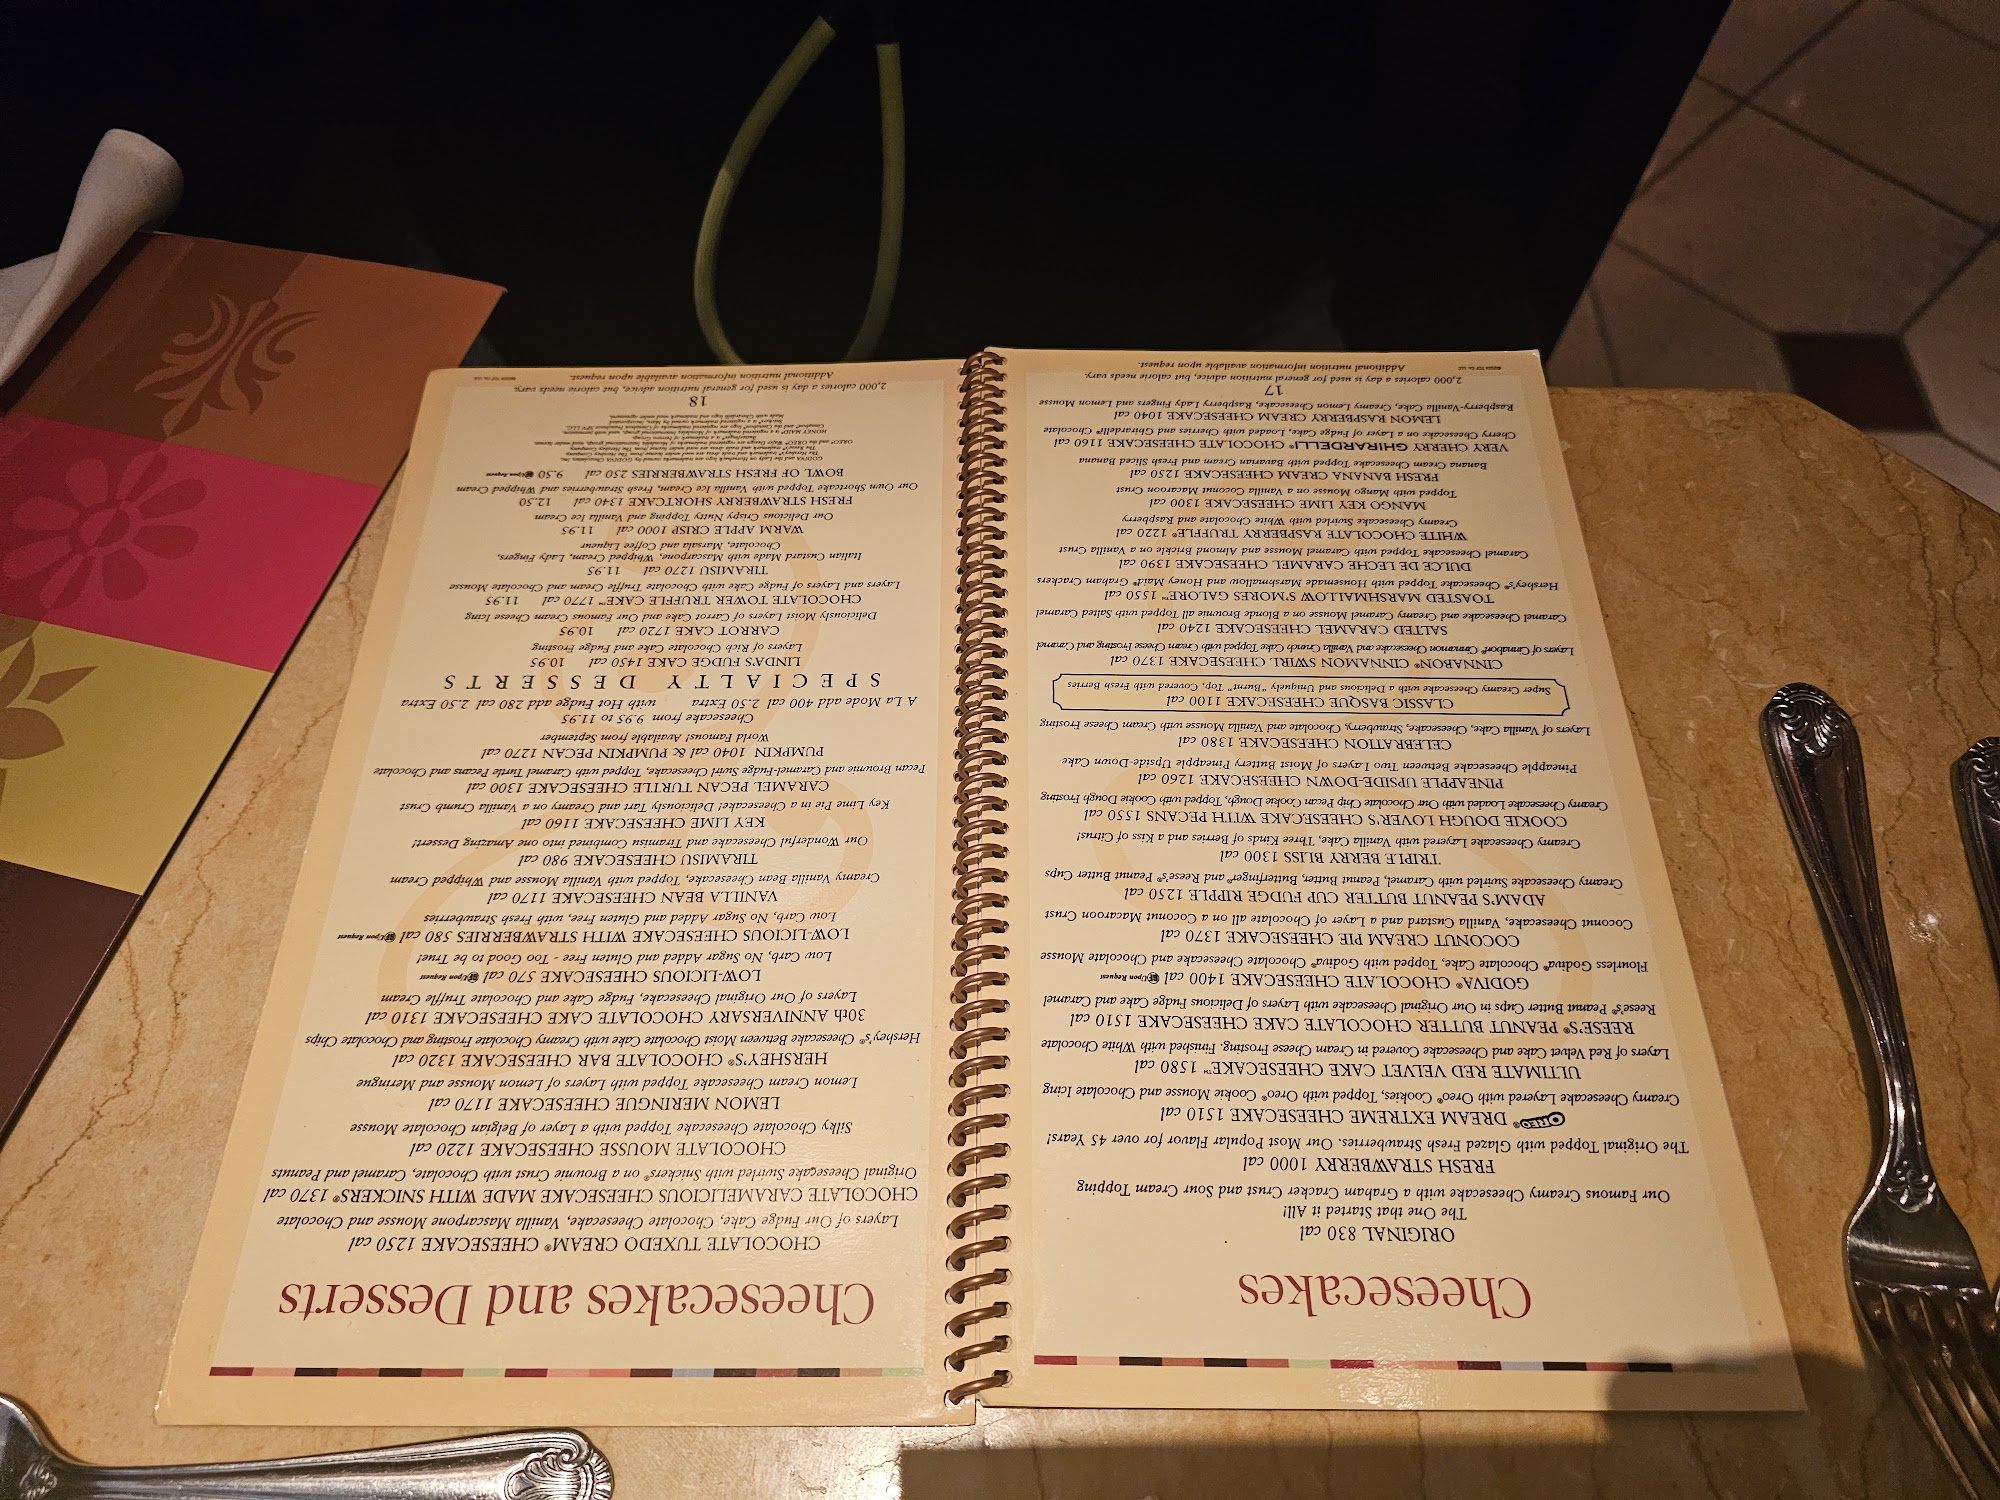 Cheesecakes
ORIGINAL 830 cal
The One that Started it All!
Our Famous Creamy Cheesecake with a Graham Cracker Crust and Sour Cream Topping
FRESH STRAWBERRY 1000 cal
The Original Topped with Glazed Fresh Strawberries. Our Most Popular Flavor for over 45 Years!
OREO® DREAM EXTREME CHEESECAKE 1510 cal
Creamy Cheesecake Layered with Oreo® Cookies, Topped with Oreo® Cookie Mousse and Chocolate Icing
ULTIMATE RED VELVET CAKE CHEESECAKE™ 1580 cal
Layers of Red Velvet Cake and Cheesecake Covered in Cream Cheese Frosting. Finished with White Chocolate
REESE'S® PEANUT BUTTER CHOCOLATE CAKE CHEESECAKE 1510 cal
Reese's® Peanut Butter Cups in Our Original Cheesecake with Layers of Delicious Fudge Cake and Caramel
GODIVA® CHOCOLATE CHEESECAKE 1400 cal Upon Request
Flourless Godiva® Chocolate Cake, Topped with Godiva® Chocolate Cheesecake and Chocolate Mousse
COCONUT CREAM PIE CHEESECAKE 1370 cal
Coconut Cheesecake, Vanilla Custard and a Layer of Chocolate all on a Coconut Macaroon Crust
ADAM'S PEANUT BUTTER CUP FUDGE RIPPLE 1250 cal
Creamy Cheesecake Swirled with Caramel, Peanut Butter, Butterfinger® and Reese's® Peanut Butter Cups
TRIPLE BERRY BLISS 1300 cal
Creamy Cheesecake Layered with Vanilla Cake, Three Kinds of Berries and a Kiss of Citrus!
COOKIE DOUGH LOVER'S CHEESECAKE WITH PECANS 1550 cal
Creamy Cheesecake Loaded with Our Chocolate Chip Pecan Cookie Dough, Topped with Cookie Dough Frosting
PINEAPPLE UPSIDE-DOWN CHEESECAKE 1260 cal
Pineapple Cheesecake Between Two Layers of Moist Buttery Pineapple Upside-Down Cake
CELEBRATION CHEESECAKE 1380 cal
Layers of Vanilla Cake, Cheesecake, Strawberry, Chocolate and Vanilla Mousse with Cream Cheese Frosting
CLASSIC BASQUE CHEESECAKE 1100 cal
Super Creamy Cheesecake with a Delicious and Uniquely "Burnt" Top, Covered with Fresh Berries
CINNABON® CINNAMON SWIRL CHEESECAKE 1370 cal
Layers of Cinnabon® Cinnamon Cheesecake and Vanilla Crunch Cake Topped with Cream Cheese Frosting and Caramel
SALTED CARAMEL CHEESECAKE 1240 cal
Caramel Cheesecake and Creamy Caramel Mousse on a Blonde Brownie all Topped with Salted Caramel
TOASTED MARSHMALLOW S'MORES GALORE™ 1550 cal
Hershey's® Cheesecake Topped with Housemade Marshmallow and Honey Maid® Graham Crackers
DULCE DE LECHE CARAMEL CHEESECAKE 1390 cal
Caramel Cheesecake Topped with Caramel Mousse and Almond Brickle on a Vanilla Crust
WHITE CHOCOLATE RASPBERRY TRUFFLE® 1220 cal
Creamy Cheesecake Swirled with White Chocolate and Raspberry
MANGO KEY LIME CHEESECAKE 1300 cal
Topped with Mango Mousse on a Vanilla Coconut Macaroon Crust
FRESH BANANA CREAM CHEESECAKE 1250 cal
Banana Cream Cheesecake Topped with Bavarian Cream and Fresh Sliced Banana
VERY CHERRY GHIRARDELLI® CHOCOLATE CHEESECAKE 1160 cal
Cherry Cheesecake on a Layer of Fudge Cake, Loaded with Cherries and Ghirardelli® Chocolate
LEMON RASPBERRY CREAM CHEESECAKE 1040 cal
Raspberry-Vanilla Cake, Creamy Lemon Cheesecake, Raspberry Lady Fingers and Lemon Mousse
17
2,000 calories a day is used for general nutrition advice, but calorie needs vary.
Additional nutrition information available upon request.
Cheesecakes and Desserts
CHOCOLATE TUXEDO CREAM® CHEESECAKE 1250 cal
Layers of Our Fudge Cake, Chocolate Cheesecake, Vanilla Mascarpone Mousse and Chocolate
CHOCOLATE CARAMELICIOUS CHEESECAKE MADE WITH SNICKERS® 1370 cal
Original Cheesecake Swirled with Snickers® on a Brownie Crust with Chocolate, Caramel and Peanuts
CHOCOLATE MOUSSE CHEESECAKE 1220 cal
Silky Chocolate Cheesecake Topped with a Layer of Belgian Chocolate Mousse
LEMON MERINGUE CHEESECAKE 1170 cal
Lemon Cream Cheesecake Topped with Layers of Lemon Mousse and Meringue
HERSHEY'S® CHOCOLATE BAR CHEESECAKE 1320 cal
Hershey's® Cheesecake Between Moist Chocolate Cake with Creamy Chocolate Frosting and Chocolate Chips
30th ANNIVERSARY CHOCOLATE CAKE CHEESECAKE 1310 cal
Layers of Our Original Cheesecake, Fudge Cake and Chocolate Truffle Cream
LOW-LICIOUS CHEESECAKE 570 cal Upon Request
Low Carb, No Sugar Added and Gluten Free - Too Good to be True!
LOW-LICIOUS CHEESECAKE WITH STRAWBERRIES 580 cal Upon Request
Low Carb, No Sugar Added and Gluten Free, with Fresh Strawberries
VANILLA BEAN CHEESECAKE 1170 cal
Creamy Vanilla Bean Cheesecake, Topped with Vanilla Mousse and Whipped Cream
TIRAMISU CHEESECAKE 980 cal
Our Wonderful Cheesecake and Tiramisu Combined into one Amazing Dessert!
KEY LIME CHEESECAKE 1160 cal
Key Lime Pie in a Cheesecake! Deliciously Tart and Creamy on a Vanilla Crumb Crust
CARAMEL PECAN TURTLE CHEESECAKE 1300 cal
Pecan Brownie and Caramel-Fudge Swirl Cheesecake, Topped with Caramel Turtle Pecans and Chocolate
PUMPKIN 1040 cal & PUMPKIN PECAN 1270 cal
World Famous! Available from September
Cheesecake from 9.95 to 11.95
A La Mode add 400 cal 2.50 Extra with Hot Fudge add 280 cal 2.50 Extra
SPECIALTY DESSERTS
LINDA'S FUDGE CAKE 1450 cal 10.95
Layers of Rich Chocolate Cake and Fudge Frosting
CARROT CAKE 1720 cal 10.95
Deliciously Moist Layers of Carrot Cake and Our Famous Cream Cheese Icing
CHOCOLATE TOWER TRUFFLE CAKE™ 1770 cal 11.95
Layers and Layers of Fudge Cake with Chocolate Truffle Cream and Chocolate Mousse
TIRAMISU 1270 cal 11.95
Italian Custard Made with Mascarpone, Whipped Cream, Lady Fingers,
Chocolate, Marsala and Coffee Liqueur
WARM APPLE CRISP 1000 cal 11.95
Our Delicious Crispy Nutty Topping and Vanilla Ice Cream
FRESH STRAWBERRY SHORTCAKE 1340 cal 12.50
Our Own Shortcake Topped with Vanilla Ice Cream, Fresh Strawberries and Whipped Cream
BOWL OF FRESH STRAWBERRIES 250 cal Upon Request 9.50
18
2,000 calories a day is used for general nutrition advice, but calorie needs vary.
Additional nutrition information available upon request.